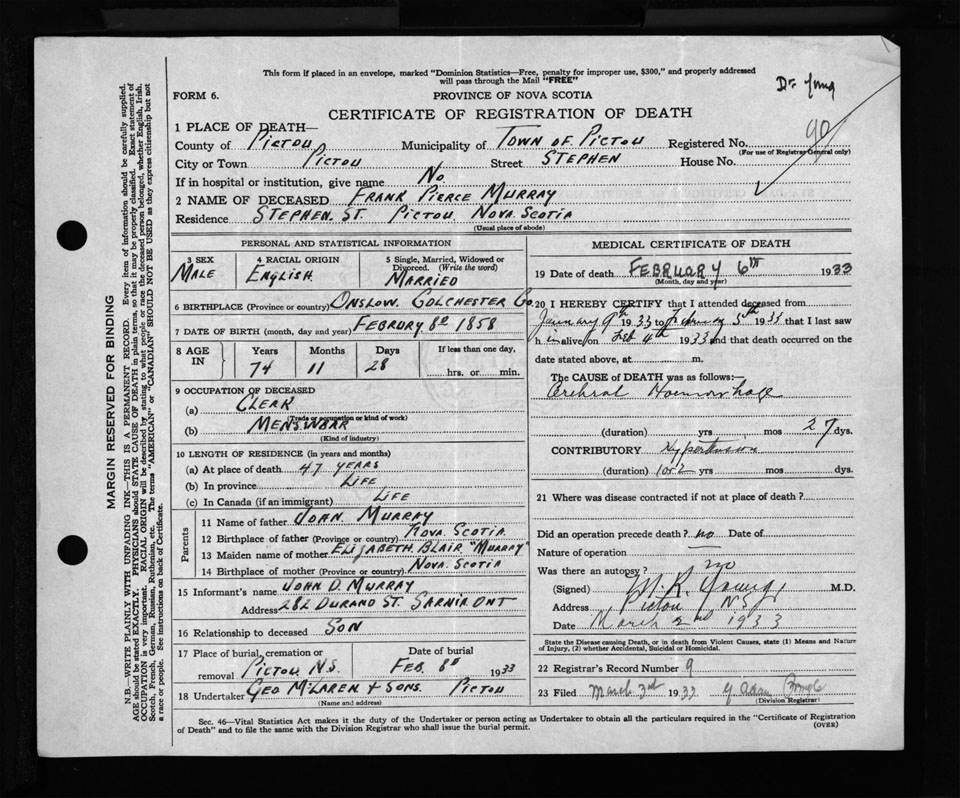 This form if placed in an envelope, marked "Dominion Statistics—Free, penalty for improper use, $300," and properly addressed
will pass through the Mail "FREE"
Dr Young
FORM 6.
PROVINCE OF NOVA SCOTIA
CERTIFICATE OF REGISTRATION OF DEATH
90
1 PLACE OF DEATH—
County of PICTOU Municipality of TOWN OF PICTOU Registered No.
(For use of Registrar General only)
City or Town PICTOU Street STEPHEN House No.
If in hospital or institution, give name No
2 NAME OF DECEASED FRANK PIERCE MURRAY
Residence STEPHEN. ST. PICTOU NOVA SCOTIA
(Usual place of abode)
PERSONAL AND STATISTICAL INFORMATION
3 SEX
MALE
4 RACIAL ORIGIN
ENGLISH
5 Single, Married, Widowed or
Divorced. (Write the word)
MARRIED
6 BIRTHPLACE (Province or country) ONSLOW. COLCHESTER Co.
7 DATE OF BIRTH (month, day and year) FEBRURY 8th 1858
8 AGE
IN
Years
74
Months
11
Days
28
If less than one day,
hrs. or min.
9 OCCUPATION OF DECEASED
(a) CLERK
(Trade or occupation or kind of work)
(b) MENSWEAR
(Kind of industry)
10 LENGTH OF RESIDENCE (in years and months)
(a) At place of death 47 YEARS
(b) In province LIFE
(c) In Canada (if an immigrant) LIFE
Parents
11 Name of father JOHN. MURRAY
12 Birthplace of father (Province or country) NOVA. SCOTIA.
13 Maiden name of mother ELIZABETH. BLAIR "MURRAY"
14 Birthplace of mother (Province or country) NOVA. SCOTIA
15 Informant's name JOHN D. MURRAY
Address 282 DURAND ST. SARNIA ONT
16 Relationship to deceased SON
17 Place of burial, cremation or
removal PICTOU N.S.
Date of burial
FEB. 8th 1933
18 Undertaker GEO McLAREN & SONS. PICTOU
(Name and address)
MEDICAL CERTIFICATE OF DEATH
19 Date of death FEBRUARY 6TH 1933
(Month, day and year)
20 I HEREBY CERTIFY that I attended deceased from
January 9th 1933 to February 5th 1933 that I last saw
h im alive on Feb 4th 1933 and that death occurred on the
date stated above, at m.
The CAUSE of DEATH was as follows:—
Cerebral Hoemorrhage
(duration) yrs mos 27 dys.
CONTRIBUTORY Hypertension
(duration) 1 or 2 yrs mos dys.
21 Where was disease contracted if not at place of death?
Did an operation precede death? no Date of
Nature of operation
Was there an autopsy? no
(Signed) M. R. Young, M.D.
Address Pictou N.S.
Date March 2nd 1933
State the Disease causing Death, or in death from Violent Causes, state (1) Means and Nature
of Injury, (2) whether Accidental, Suicidal or Homicidal.
22 Registrar's Record Number 9
23 Filed March 3rd 1933 G. Adam Pringle
(Division Registrar)
Sec. 46—Vital Statistics Act makes it the duty of the Undertaker or person acting as Undertaker to obtain all the particulars required in the "Certificate of Registration
of Death" and to file the same with the Division Registrar who shall issue the burial permit.
(OVER)
MARGIN RESERVED FOR BINDING
N.B.—WRITE PLAINLY WITH UNFADING INK—THIS IS A PERMANENT RECORD. Every item of information should be carefully supplied.
AGE should be stated EXACTLY. PHYSICIANS should STATE CAUSE OF DEATH in plain terms, so that it may be properly classified. Exact statement of
OCCUPATION is very important. RACIAL ORIGIN will be described by stating to what people or race the deceased person belonged, whether English, Irish,
Scotch, French, German, Russian, Ruthenian, etc. The terms "AMERICAN" or "CANADIAN" SHOULD NOT BE USED as they express citizenship but not
a race or people. See instructions on back of Certificate.